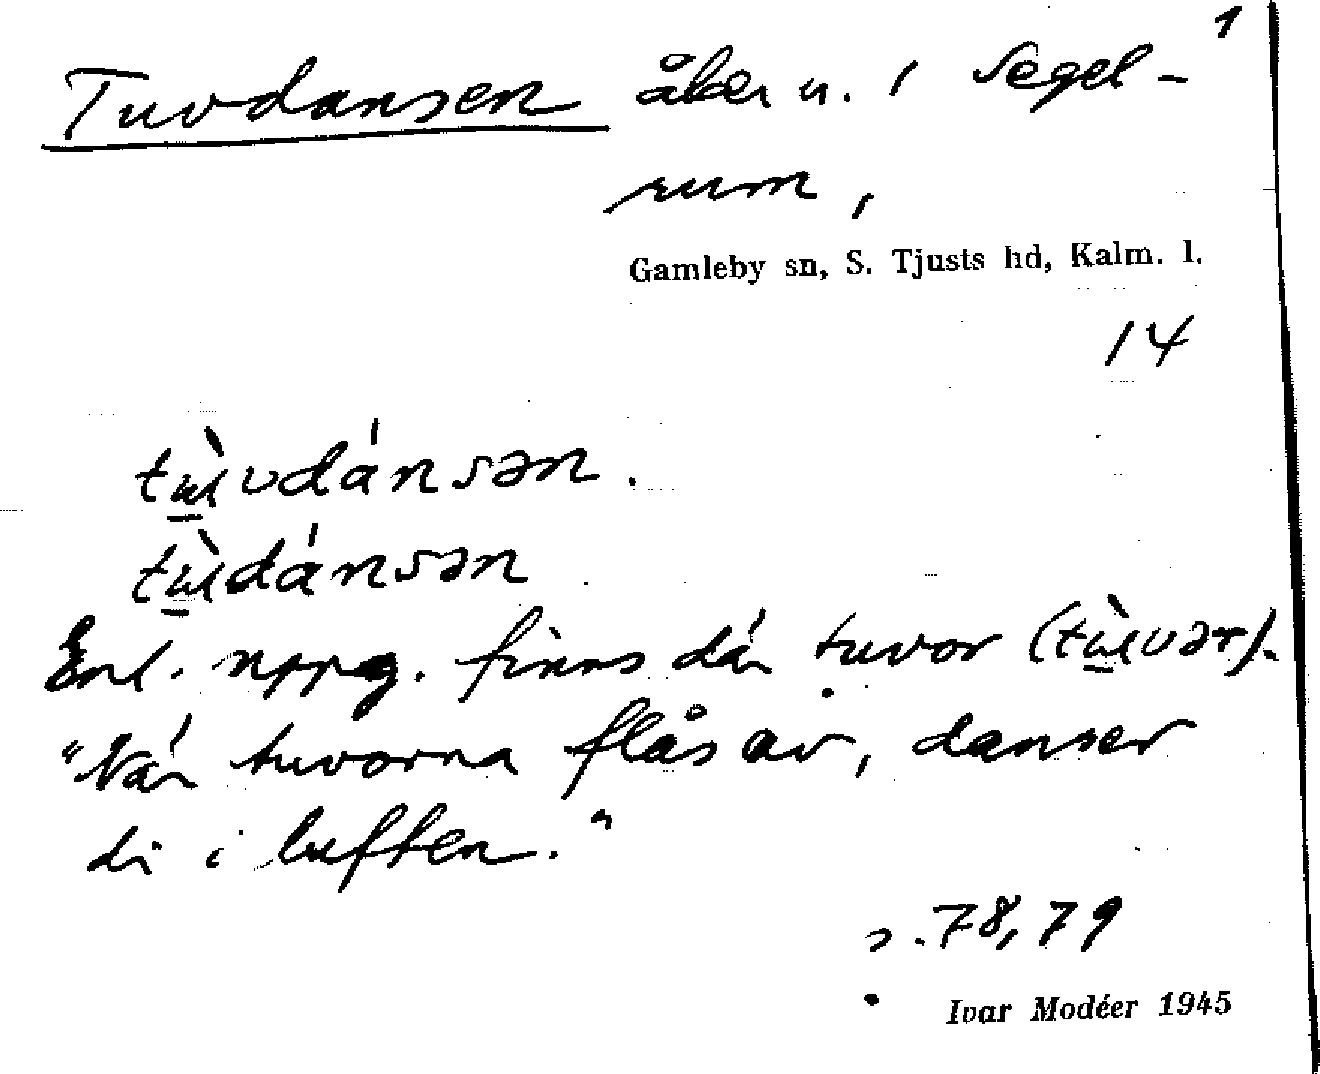 1
Tuvdansen åker n. i Segel-
rum,
Gamleby sn, S. Tjusts hd, Kalm. l.
14
tù̲vdánsən.
tù̲dánsən
Enl. uppg. finns där tuvor (tù̲vər).
"När tuvorna flås av, danser
di i luften."
s. 78, 79
Ivar Modéer 1945